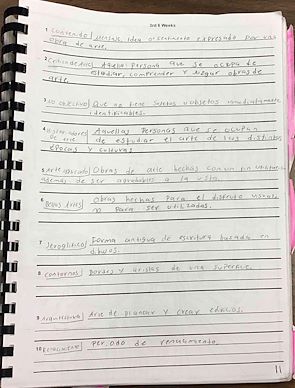 3rd 6 Weeks
1 Contenido Mensaje, idea o sentimiento expresado por una
obra de arte.
2 Critico de Arte Aquella persona que se ocupa de
estudiar, comprender y juzgar obras de
arte.
3 No objetivo Que no tiene sujetos u objetos inmediatamente
identificables.
4 Historiadores de arte Aquellas personas que se ocupan
de estudiar el arte de los distintas
épocas y culturas
5 Arte Aplicado Obras de arte hechas con un fin utilitario
además de ser agradables a la vista.
6 Bellas Artes Obras hechas para el disfrute visual
no para ser utilizadas.
7 Jeroglífico Forma antigua de escritura basada en
dibujos.
8 Contornos Bordes y aristas de una superficie.
9 Arquitectura Arte de planear y crear edificios.
10 Renacimiento Periodo de renacimiento.
11